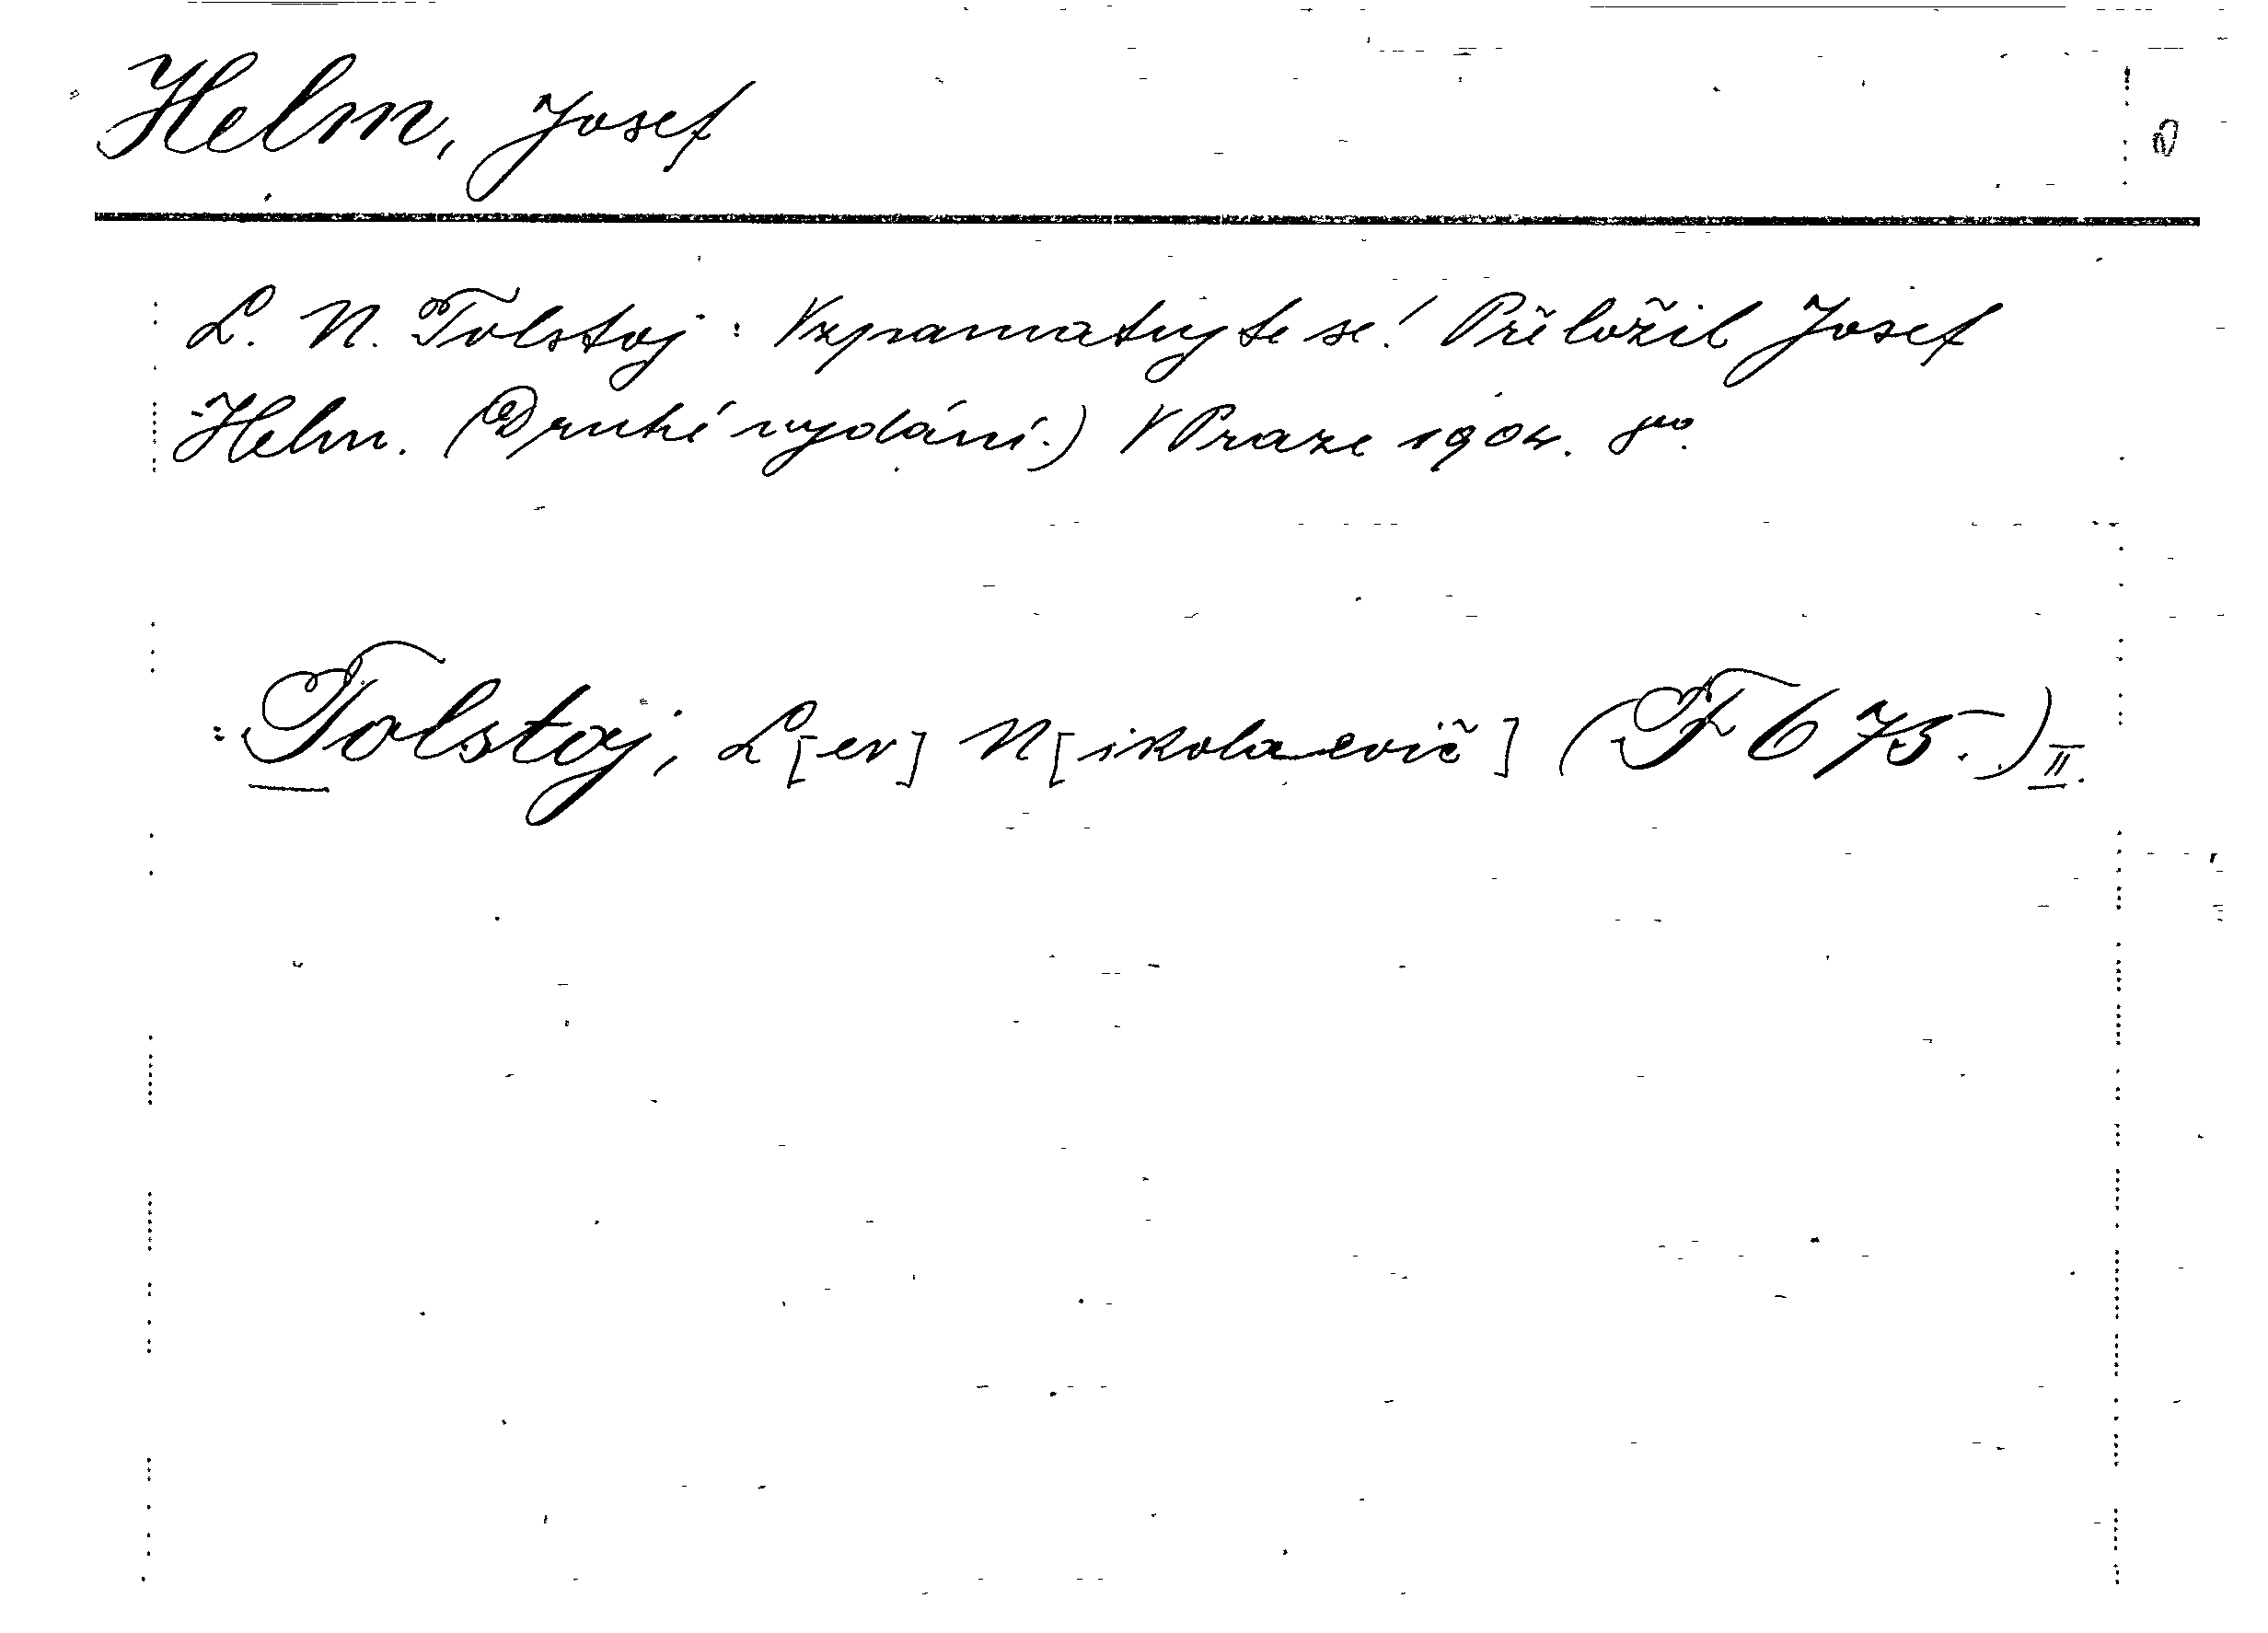 Helm, Josef
L. N. Tolstoj: Vzpamatujte se! Přeložil Josef
Helm. (Druhé vydání.) V Praze 1904. 8vo.
Tolstoj, L[ev] N[ikolaevič] (F 675.) II.